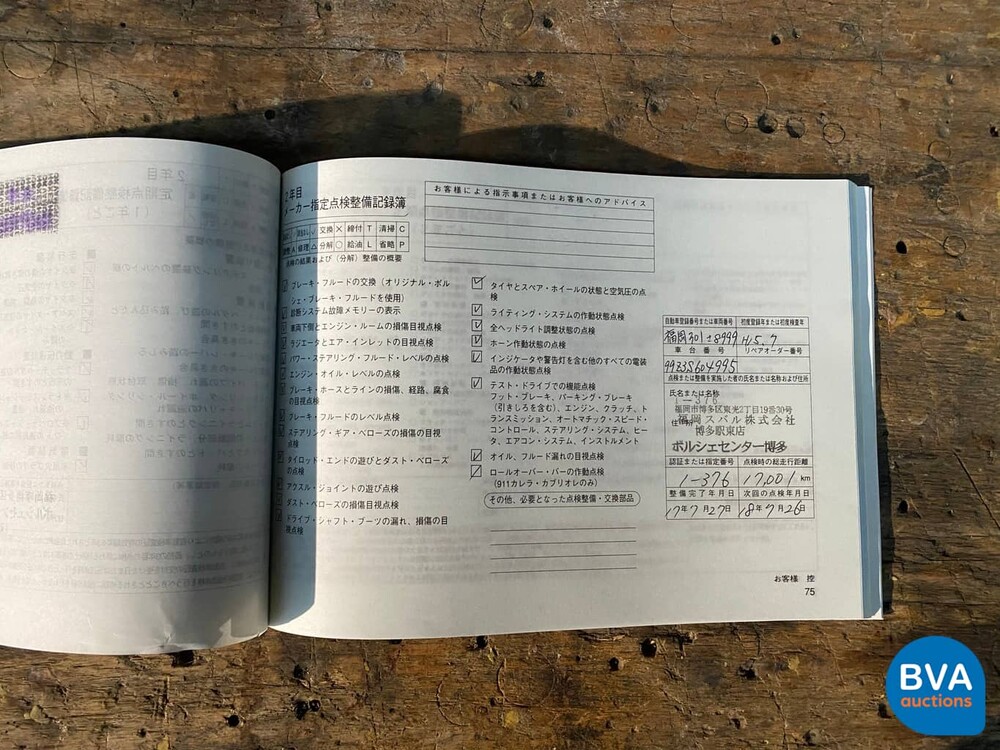 2年目
メーカー指定点検整備記録簿
交換 × 締付 T 清掃 C
修理 △ 分解 ○ 給油 L 省略 P
点検の結果および(分解)整備の概要
お客様による指示事項またはお客様へのアドバイス
ブレーキ・フルードの交換(オリジナル・ポル
シェ・ブレーキ・フルードを使用)
診断システム故障メモリーの表示
車両下側とエンジン・ルームの損傷目視点検
ラジエータとエア・インレットの目視点検
パワー・ステアリング・フルード・レベルの点検
エンジン・オイル・レベルの点検
ブレーキ・ホースとラインの損傷、経路、腐食
の目視点検
ブレーキ・フルードのレベル点検
ステアリング・ギア・ベローズの損傷の目視
点検
タイロッド・エンドの遊びとダスト・ベローズ
の点検
アクスル・ジョイントの遊び点検
ダスト・ベローズの損傷目視点検
ドライブ・シャフト・ブーツの漏れ、損傷の目
視点検
タイヤとスペア・ホイールの状態と空気圧の点
検
ライティング・システムの作動状態点検
全ヘッドライト調整状態の点検
ホーン作動状態の点検
インジケータや警告灯を含む他のすべての電装
品の作動状態点検
テスト・ドライブでの機能点検
フット・ブレーキ、パーキング・ブレーキ
(引きしろを含む)、エンジン、クラッチ、ト
ランスミッション、オートマチック・スピード・
コントロール、ステアリング・システム、ヒー
タ、エアコン・システム、インストルメント
オイル、フルード漏れの目視点検
ロールオーバー・バーの作動点検
(911カレラ・カブリオレのみ)
その他、必要となった点検整備・交換部品
自動車登録番号または車両番号 初度登録年または初度検査年
福岡301 8999 H15.7
車台番号 リペアオーダー番号
99235604995
点検または整備を実施した者の氏名または名称および住所
氏名または名称
1-376
福岡市博多区東光2丁目19番30号
福岡スバル株式会社
博多駅東店
ポルシェセンター博多
認証または指定番号 点検時の総走行距離
1-376 17,001 km
整備完了年月日 次回の点検年月日
17年7月27日 18年7月26日
お客様 控
75
BVA
auctions